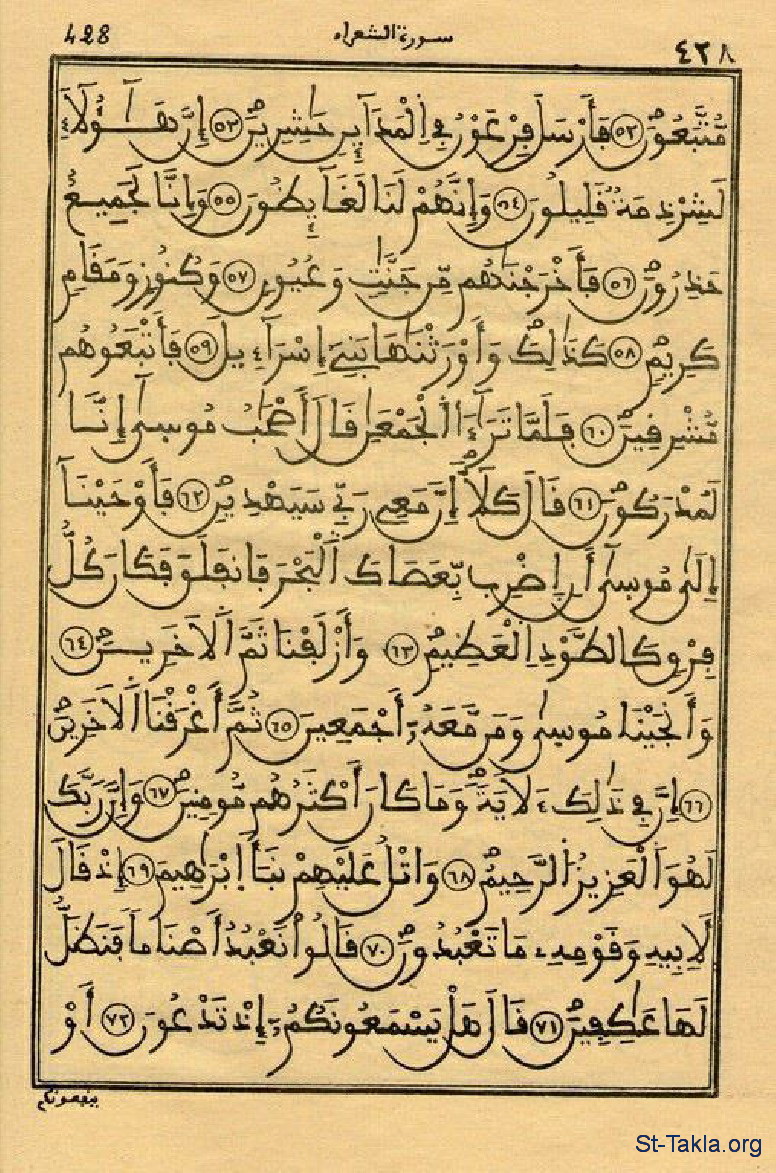 428 سورة الشعراء ٤٢٨
مُّتَّبَعُونَ ٥٢ فَأَرْسَلَ فِرْعَوْنُ فِي اِلْمَدَآئِنِ حَٰشِرِينَ ٥٣ إِنَّ هَٰٓؤُلَآءِ
لَشِرْذِمَةٌ قَلِيلُونَ ٥٤ وَإِنَّهُمْ لَنَا لَغَآئِظُونَ ٥٥ وَإِنَّا لَجَمِيعٌ
حَذِرُونَ ٥٦ فَأَخْرَجْنَٰهُم مِّن جَنَّٰتٍ وَعُيُونٍ ٥٧ وَكُنُوزٍ وَمَقَامٍ
كَرِيمٍ ٥٨ كَذَٰلِكَ وَأَوْرَثْنَٰهَا بَنِےٓ إِسْرَآءِيلَ ٥٩ فَأَتْبَعُوهُم
مُّشْرِقِينَ ٦٠ فَلَمَّا تَرَٰٓءَا اَلْجَمْعَٰنِ قَالَ أَصْحَٰبُ مُوسَىٰٓ إِنَّا
لَمُدْرَكُونَ ٦١ قَالَ كَلَّآ إِنَّ مَعِے رَبِّے سَيَهْدِينِ ٦٢ فَأَوْحَيْنَآ
إِلَىٰ مُوسَىٰٓ أَنِ اِضْرِب بِّعَصَاكَ اَلْبَحْرَ فَانفَلَقَ فَكَانَ كُلُّ
فِرْقٍ كَالطَّوْدِ اِلْعَظِيمِ ٦٣ وَأَزْلَفْنَا ثَمَّ اَلَاخَرِينَ ٦٤
وَأَنجَيْنَا مُوسَىٰ وَمَن مَّعَهُۥٓ أَجْمَعِينَ ٦٥ ثُمَّ أَغْرَقْنَا اَلَاخَرِينَ
٦٦ إِنَّ فِے ذَٰلِكَ ءَلَايَةً وَمَا كَانَ أَكْثَرُهُم مُّومِنِينَ ٦٧ وَإِنَّ رَبَّكَ
لَهُوَ اَلْعَزِيزُ اُلرَّحِيمُ ٦٨ وَاتْلُ عَلَيْهِمْ نَبَأَ اِبْرَٰهِيمَ ٦٩ إِذْ قَالَ
لِأَبِيهِ وَقَوْمِهِۦ مَا تَعْبُدُونَ ٧٠ قَالُواْ نَعْبُدُ أَصْنَاماً فَنَظَلُّ
لَهَا عَٰكِفِينَ ٧١ قَالَ هَلْ يَسْمَعُونَكُمُۥٓ إِذْ تَدْعُونَ ٧٢ أَوْ
ينفعونكم
St-Takla.org